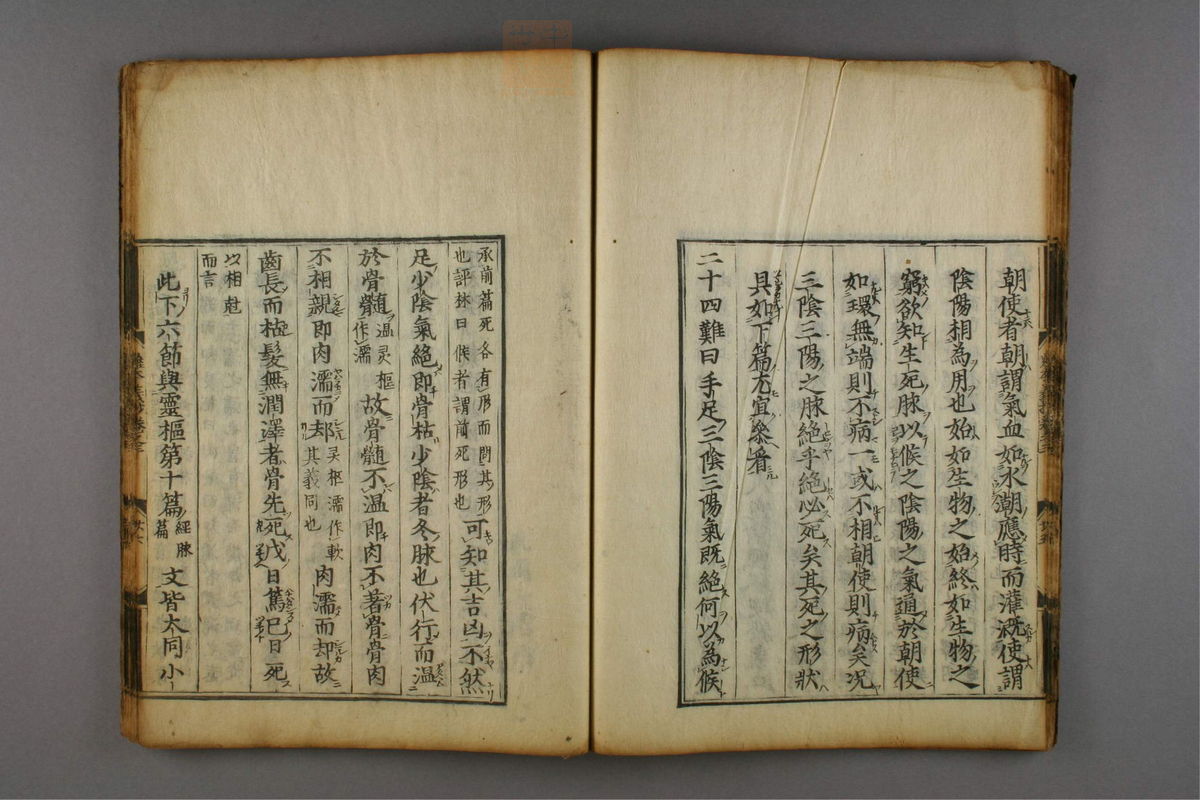 朝使者朝謂氣血如水朝應時而灌溉使謂
陰陽相為用也始如生物之始終如生物之
窮欲知生死脉以候之陰陽之氣通於朝使
如環無端則不病一或不相朝使則病矣况
三陰三陽之脉絕乎絕必死矣其死之形狀
具如下篇尤宜叅看
二十四難曰手足三陰三陽氣既絕何以為候
承前篇死各有形而問其形
也評林曰候者謂前死形也
可知其吉凶不然
足少陰氣絕即骨枯少陰者冬脉也伏行而温
於骨髓温灵樞作濡故骨髓不温即肉不著骨骨肉
不相親即肉濡而却灵樞濡作軟其義同也肉濡而却故
齒長而枯髮無潤澤者骨先死戊日篤巳日死
以相尅
而言
此下六節與靈樞第十篇經脉篇文皆大同小